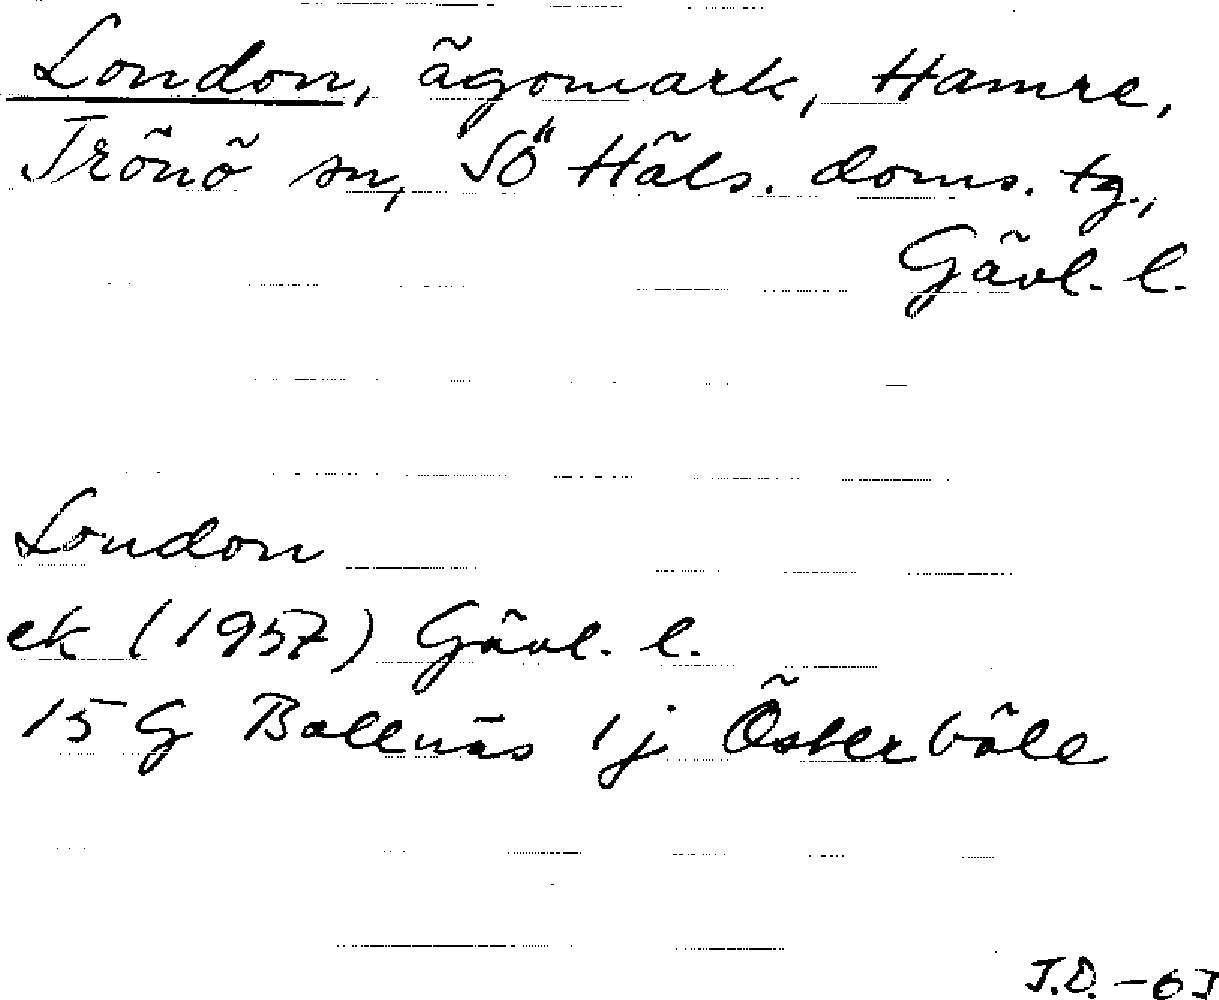 London, ägomark, Hamre,
Trönö sn, SÖ Häls. doms. tg.,
Gävl. l.
London
ek (1957) Gävl. l.
15 G Bollnäs 1j Österböle
J.D. -63